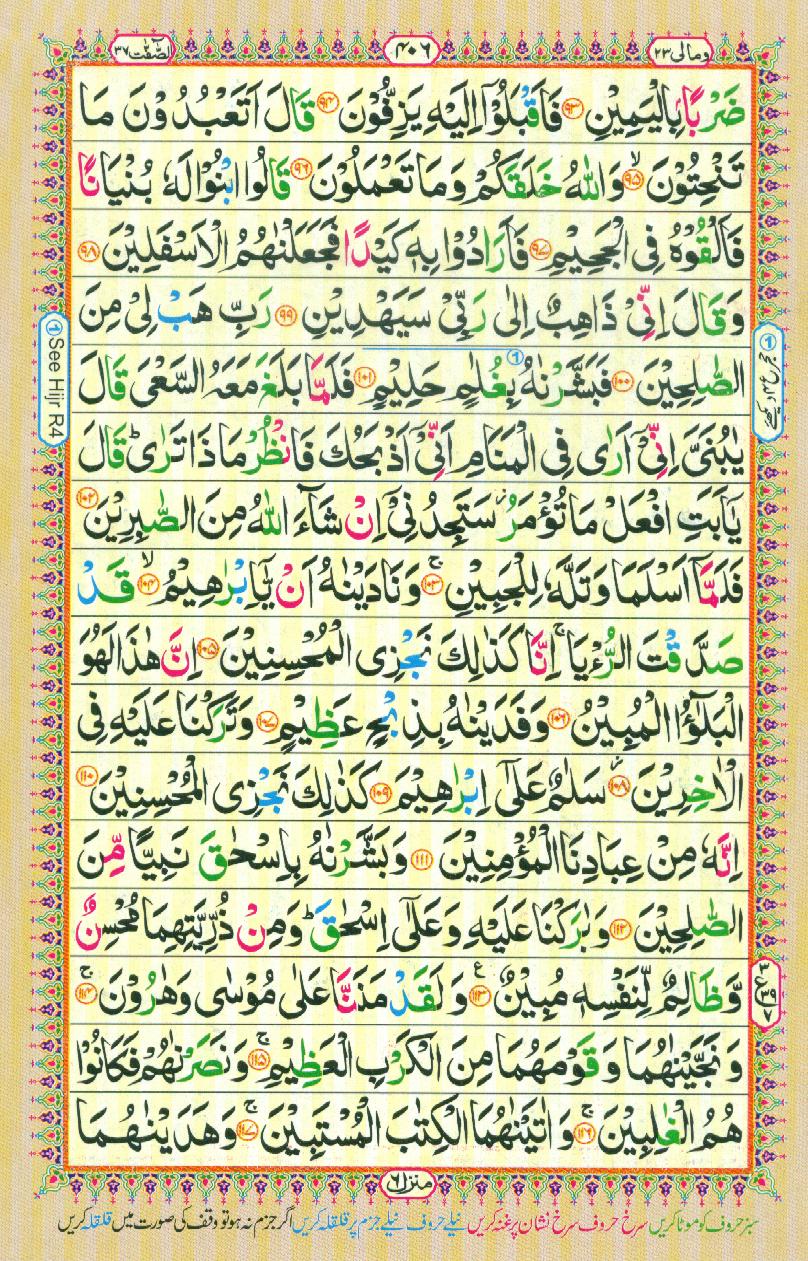 الصّٰٓفّٰت ٣٧
٤٠٦
ومالی ٢٣
ضَرْبًاۢ بِالْيَمِيْنِ ٩٣ فَاَقْبَلُوْۤا اِلَيْهِ يَزِفُّوْنَ ٩٤ قَالَ اَتَعْبُدُوْنَ مَا
تَنْحِتُوْنَ ۙ٩٥ وَاللّٰهُ خَلَقَكُمْ وَمَا تَعْمَلُوْنَ ٩٦ قَالُوا ابْنُوْا لَهٗ بُنْيَانًا
فَاَلْقُوْهُ فِى الْجَحِيْمِ ٩٧ فَاَرَادُوْا بِهٖ كَيْدًا فَجَعَلْنٰهُمُ الْاَسْفَلِيْنَ ٩٨
وَقَالَ اِنِّىْ ذَاهِبٌ اِلٰى رَبِّىْ سَيَهْدِيْنِ ٩٩ رَبِّ هَبْ لِىْ مِنَ
الصّٰلِحِيْنَ ١٠٠ فَبَشَّرْنٰهُ بِغُلٰمٍ حَلِيْمٍ ١٠١ فَلَمَّا بَلَغَ مَعَهُ السَّعْىَ قَالَ
يٰبُنَىَّ اِنِّىْۤ اَرٰى فِى الْمَنَامِ اَنِّىْۤ اَذْبَحُكَ فَانْظُرْ مَاذَا تَرٰىؕ قَالَ
يٰۤاَبَتِ افْعَلْ مَا تُؤْمَرُؗ سَتَجِدُنِىْۤ اِنْ شَآءَ اللّٰهُ مِنَ الصّٰبِرِيْنَ ١٠٢
فَلَمَّاۤ اَسْلَمَا وَتَلَّهٗ لِلْجَبِيْنِ ۚ١٠٣ وَنَادَيْنٰهُ اَنْ يّٰۤاِبْرٰهِيْمُ ۙ١٠٤ قَدْ
صَدَّقْتَ الرُّءْيَا ۚ اِنَّا كَذٰلِكَ نَجْزِى الْمُحْسِنِيْنَ ١٠٥ اِنَّ هٰذَا لَهُوَ
الْبَلٰٓؤُا الْمُبِيْنُ ١٠٦ وَفَدَيْنٰهُ بِذِبْحٍ عَظِيْمٍ ١٠٧ وَتَرَكْنَا عَلَيْهِ فِى
الْاٰخِرِيْنَ ؗ١٠٨ سَلٰمٌ عَلٰٓى اِبْرٰهِيْمَ ١٠٩ كَذٰلِكَ نَجْزِى الْمُحْسِنِيْنَ ١١٠
اِنَّهٗ مِنْ عِبَادِنَا الْمُؤْمِنِيْنَ ١١١ وَبَشَّرْنٰهُ بِاِسْحٰقَ نَبِيًّا مِّنَ
الصّٰلِحِيْنَ ١١٢ وَبٰرَكْنَا عَلَيْهِ وَعَلٰٓى اِسْحٰقَؕ وَمِنْ ذُرِّيَّتِهِمَا مُحْسِنٌ
وَّظَالِمٌ لِّنَفْسِهٖ مُبِيْنٌ ١١٣ وَلَقَدْ مَنَنَّا عَلٰى مُوْسٰى وَهٰرُوْنَ ۚ١١٤
وَنَجَّيْنٰهُمَا وَقَوْمَهُمَا مِنَ الْكَرْبِ الْعَظِيْمِ ۚ١١٥ وَنَصَرْنٰهُمْ فَكَانُوْا
هُمُ الْغٰلِبِيْنَ ۚ١١٦ وَاٰتَيْنٰهُمَا الْكِتٰبَ الْمُسْتَبِيْنَ ۚ١١٧ وَهَدَيْنٰهُمَا
① See Hijr R4
منزل ٦
سبز حروف کو موٹا کریں سرخ حروف سرخ نشان پر غنہ کریں نیلے حروف نیلے جزم پر قلقلہ کریں اگر جزم نہ ہو تو وقف کی صورت میں قلقلہ کریں